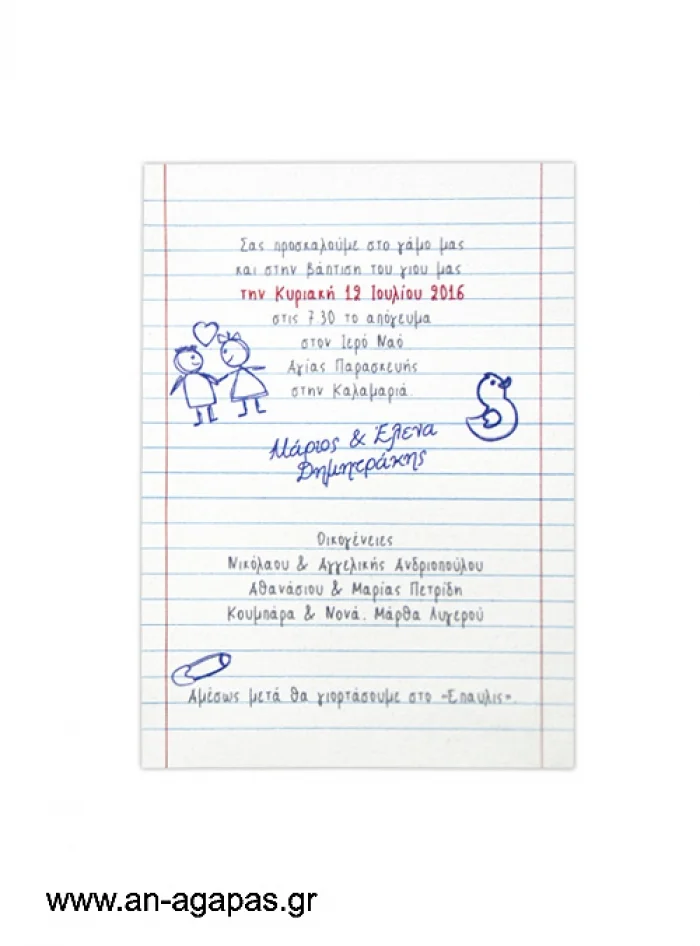 Σας προσκαλούμε στο γάμο μας
και στην βάπτιση του γιου μας
την Κυριακή 12 Ιουλίου 2016
στις 7.30 το απόγευμα
στον Ιερό Ναό
Αγίας Παρασκευής
στην Καλαμαριά.
Μάριος & Έλενα
Δημητράκης
Οικογένειες
Νικόλαου & Αγγελικής Ανδριοπούλου
Αθανάσιου & Μαρίας Πετρίδη
Κουμπάρα & Νονά: Μάρθα Λυγερού
Αμέσως μετά θα γιορτάσουμε στο «Επαυλις».
www.an-agapas.gr